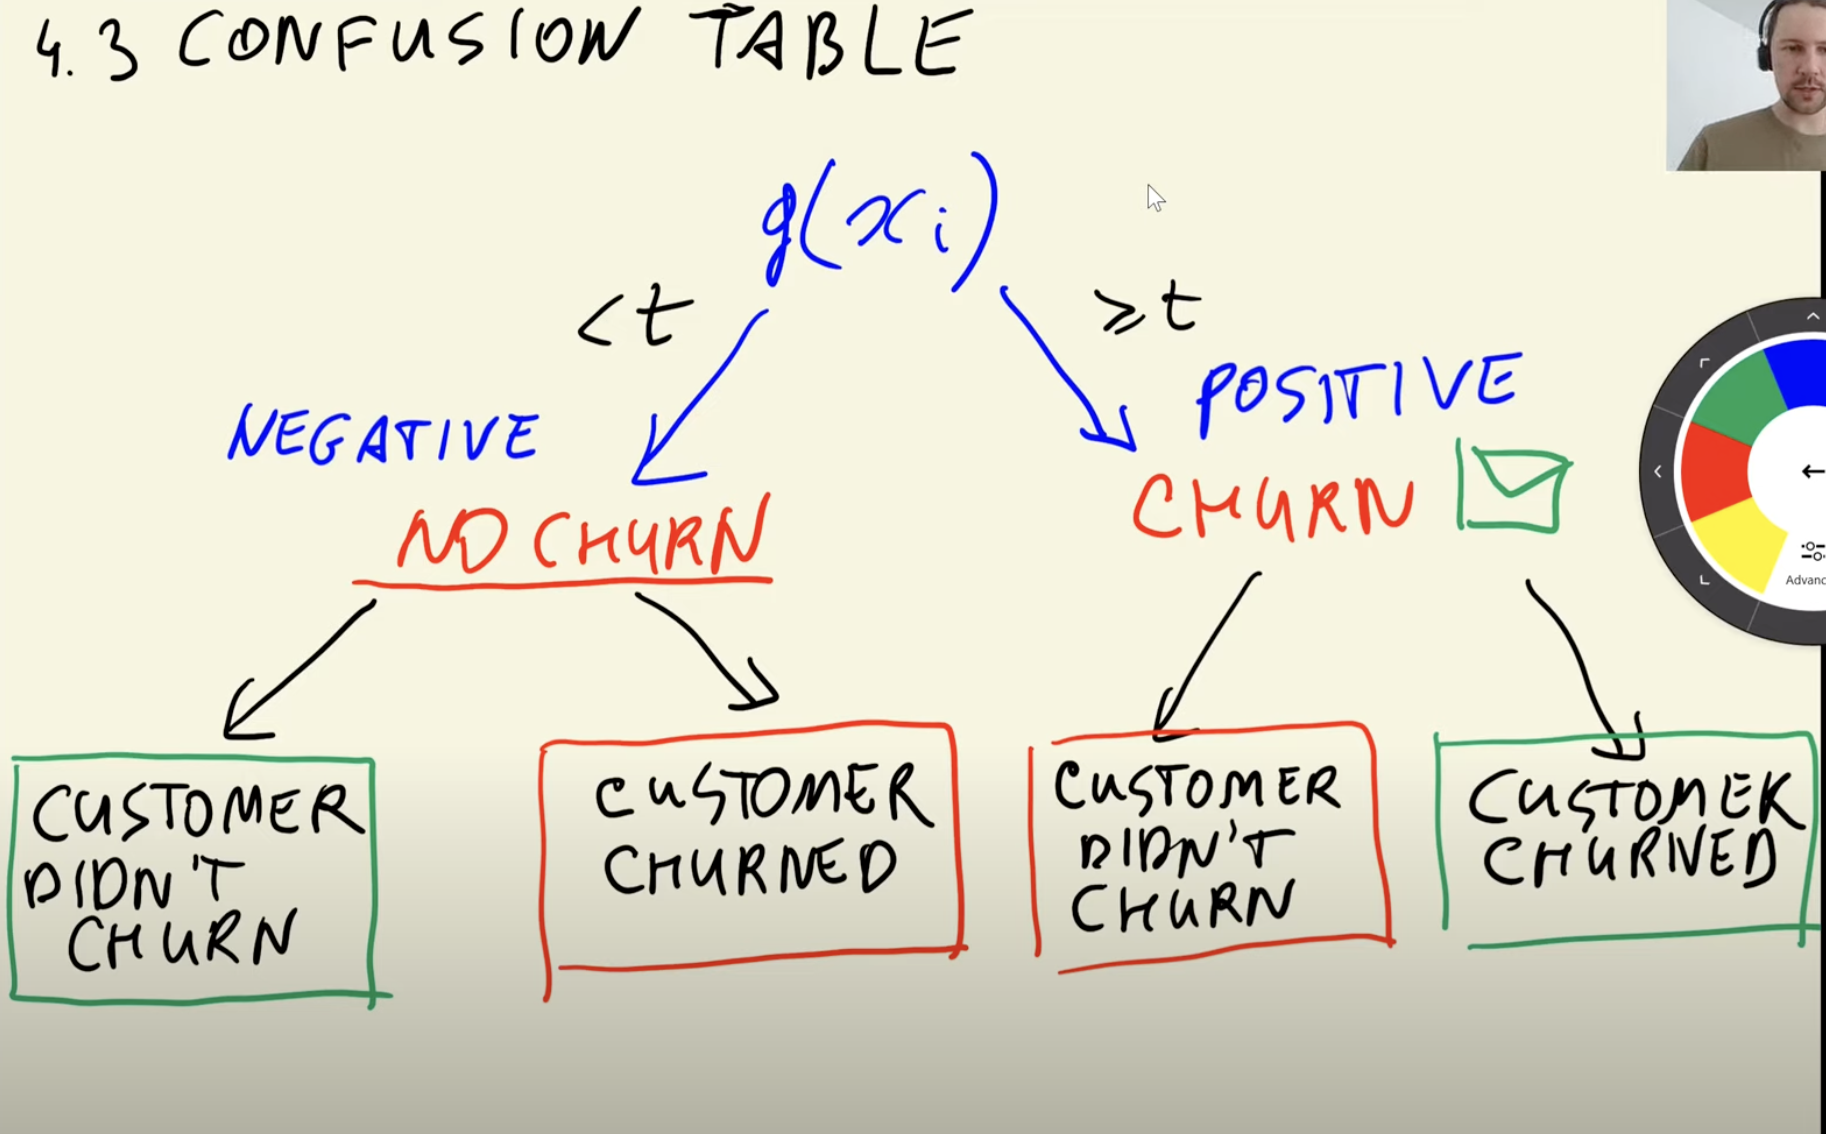 4.3 CONFUSION TABLE
g(xi)
<t
≥t
NEGATIVE
POSITIVE
NO CHURN
CHURN
CUSTOMER
DIDN'T
CHURN
CUSTOMER
CHURNED
CUSTOMER
DIDN'T
CHURN
CUSTOMER
CHURNED
Advanc